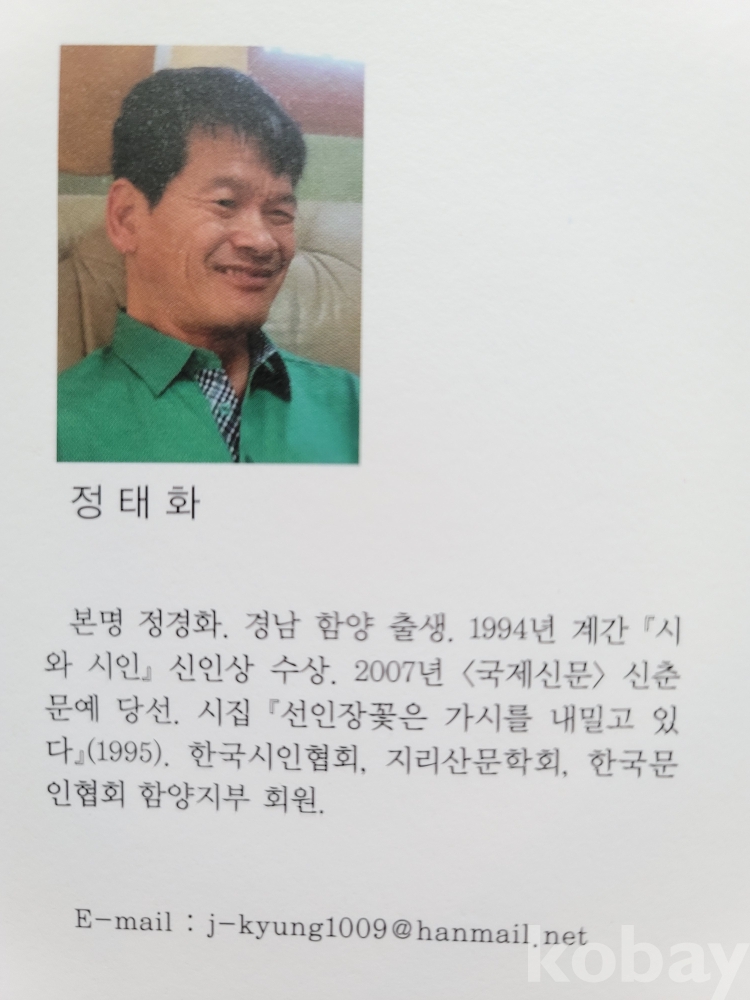 정태화
본명 정경화. 경남 함양 출생. 1994년 계간 『시
와 시인』 신인상 수상. 2007년 〈국제신문〉 신춘
문예 당선. 시집 『선인장꽃은 가시를 내밀고 있
다』(1995). 한국시인협회, 지리산문학회, 한국문
인협회 함양지부 회원.
E-mail : j-kyung1009@hanmail.net
kobay